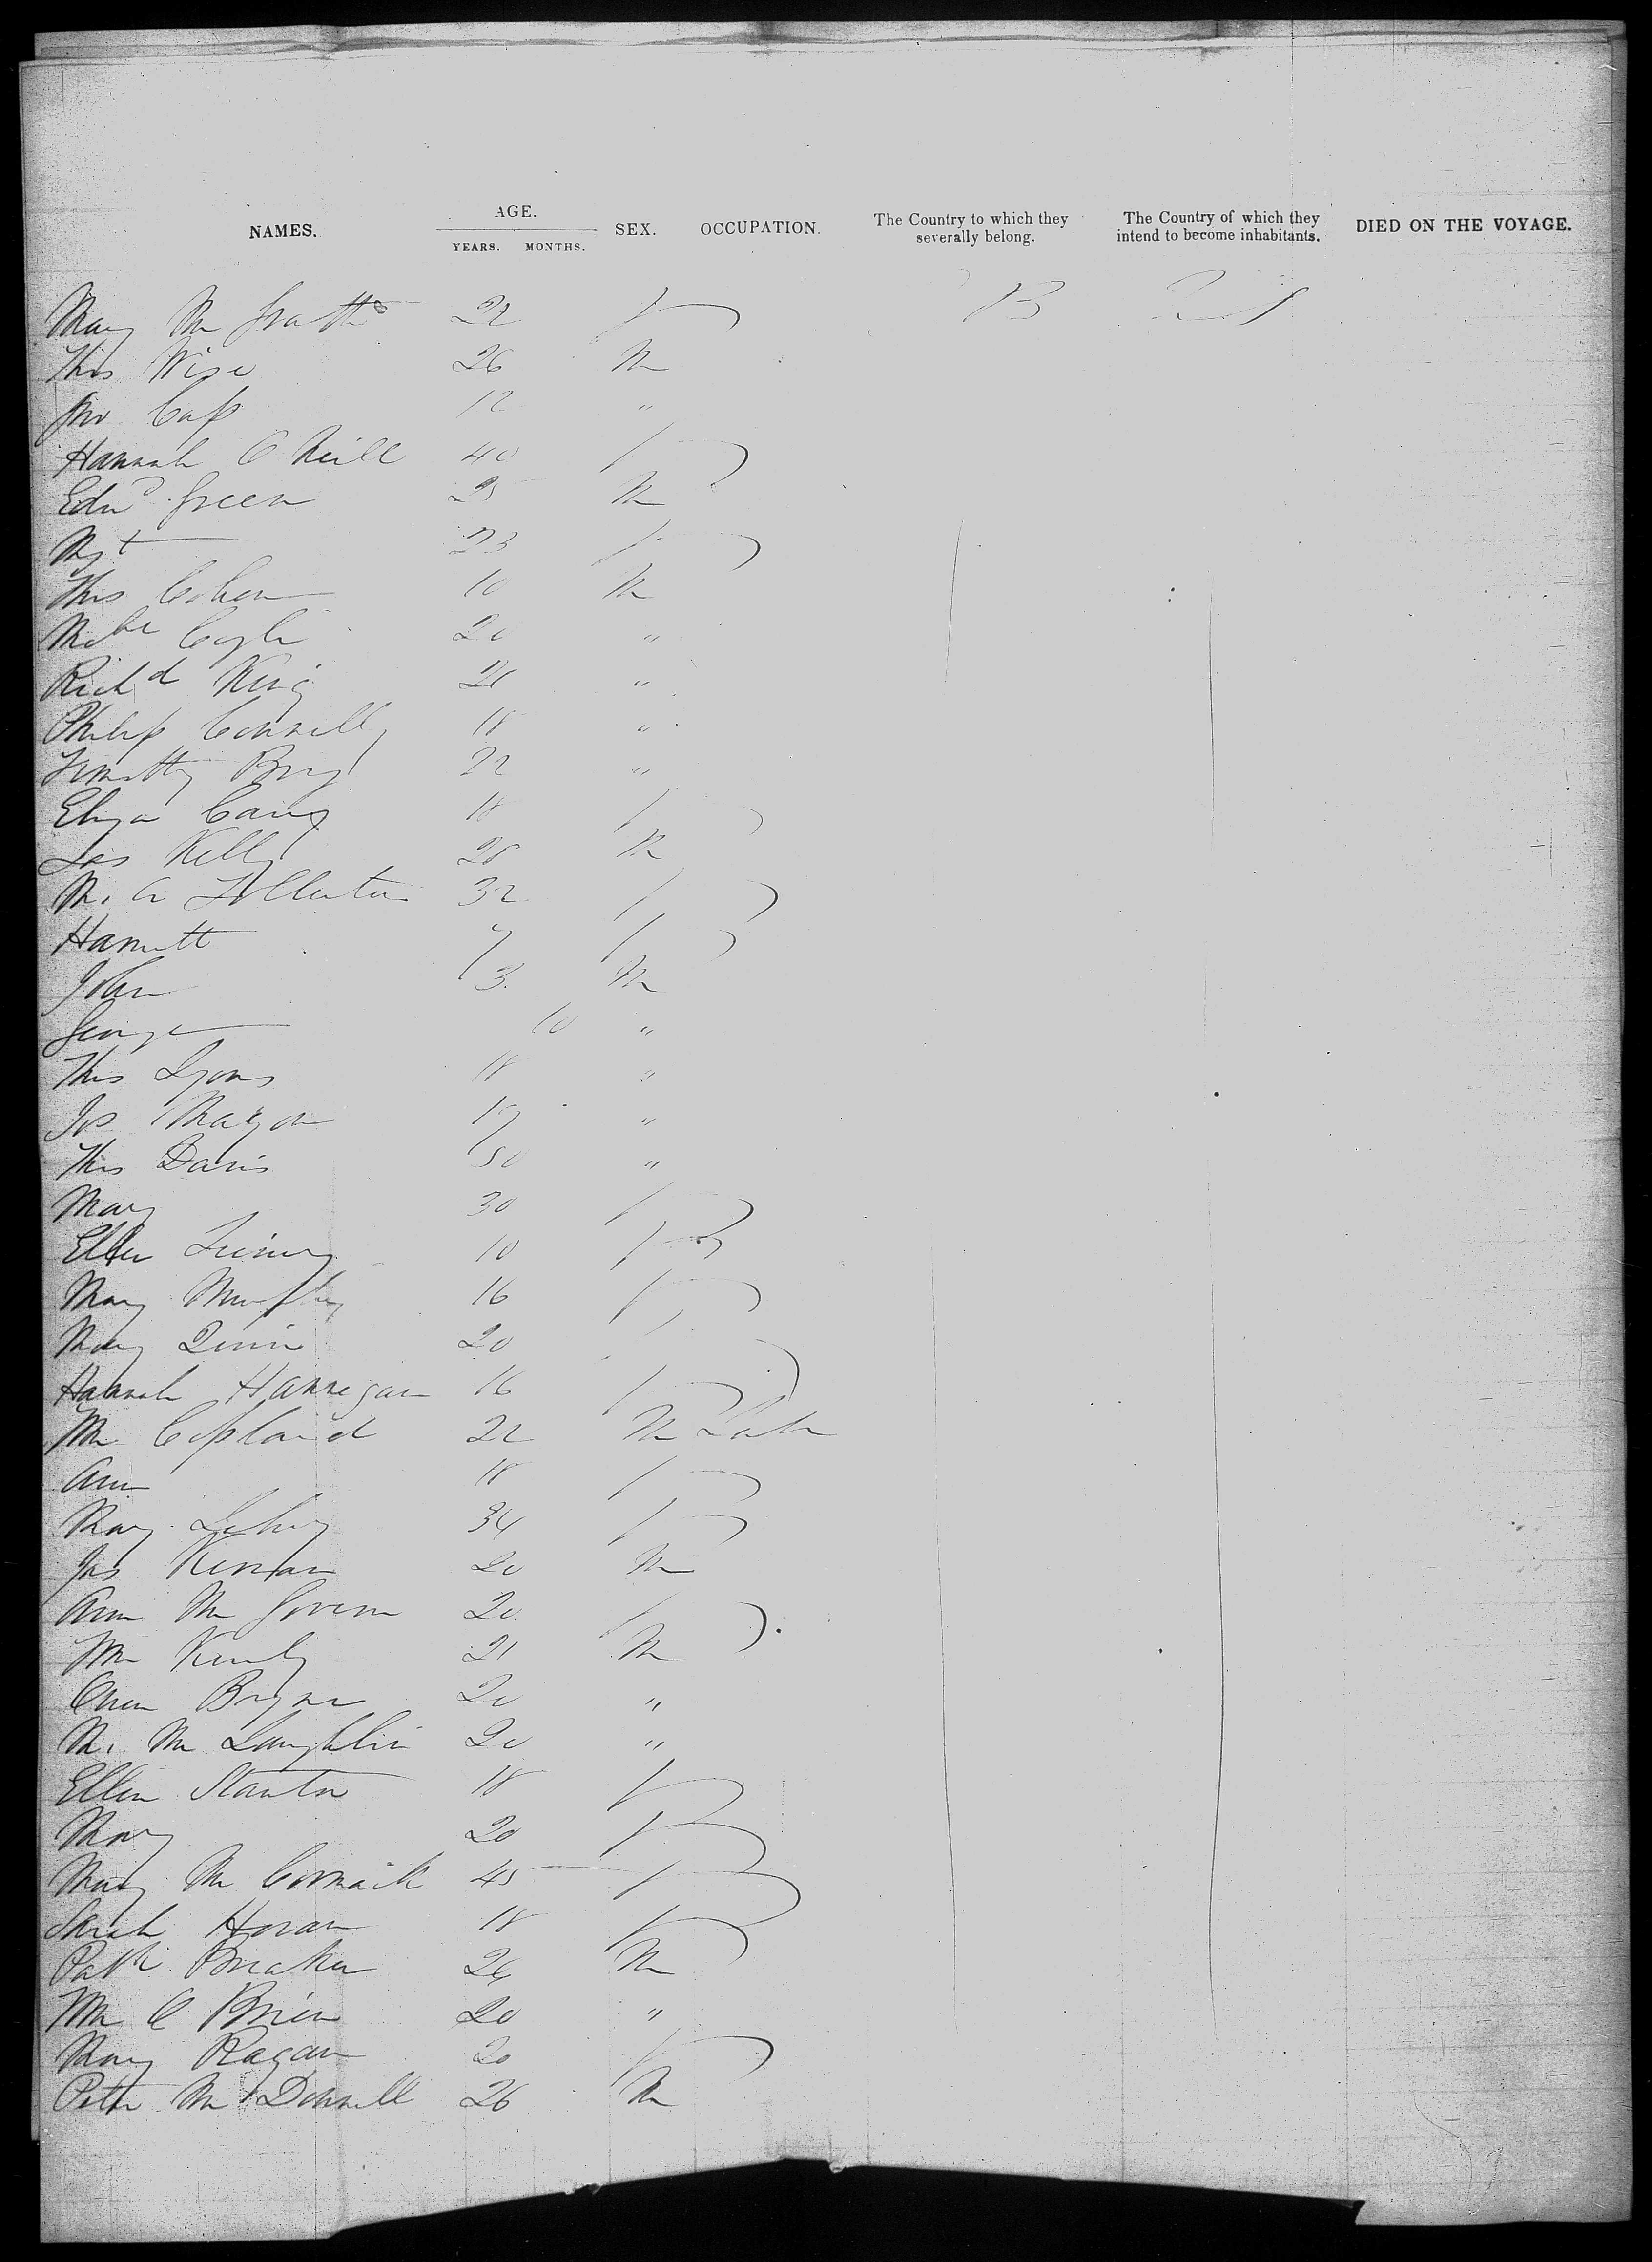 NAMES. AGE. YEARS. MONTHS. SEX. OCCUPATION. The Country to which they severally belong. The Country of which they intend to become inhabitants. DIED ON THE VOYAGE.
Mary Mc Grath 22 f
Thos Wise 26 M
Jno 12 "
Hannah O Neill 40 f
Edwd Green 25 M
Mgt 23 f
Thos 10 M
Michl Coyle 20 "
Richd King 21 "
Philip Connelly 18 "
Timothy 22 "
Eliza Carey 18 f
Jas Kelly 28 M
M. A 32 f
7 f
John 3 M
George 10 "
Thos Lyons 18 "
Jos 17 "
Thos Davis 50 "
Mary 30 f
Ellen 10 f
Mary Murphy 16 f
Mary Quin 20 f
Hannah Hannegan 16 f
Wm Copland 22 M Lab
Ann 18 f
Mary 34 f
Jas Kernan 20 M
Ann Mc Govern 20 f
Wm 21 M
Owen Bryne 20 "
M. Mc Laughlin 20 "
Ellen Stanton 18 f
Mary 20 f
Mary Mc Cormack 45 f
Sarah Horan 18 f
Patk 24 M
Wm O Brien 20 "
Mary Ragan 20 f
Peter Mc Donnell 26 M